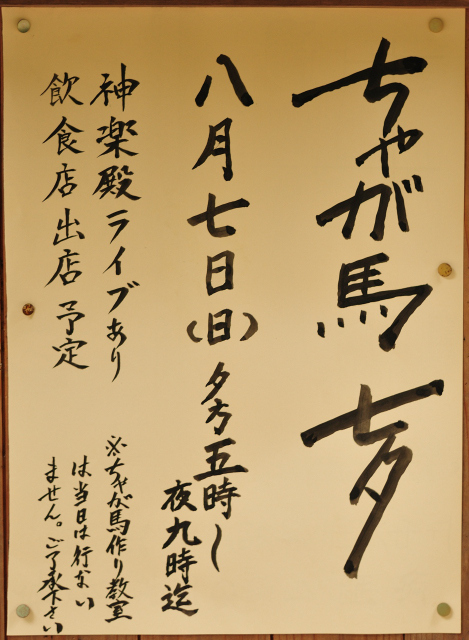 ちゃが馬七夕
八月七日(日)夕方五時〜
夜九時迄
神楽殿ライブあり
飲食店出店予定
※ちゃが馬作り教室
は当日は行ない
ません。ご了承下さい